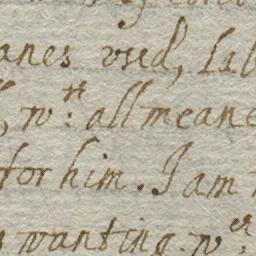 anes vsed, lab
wth: all meane
for him. I am
wanting. wer: